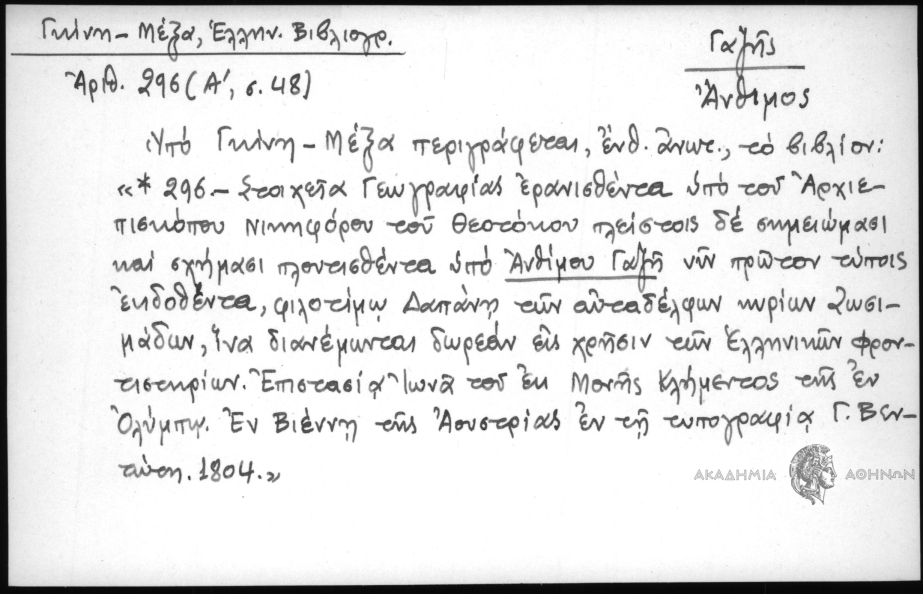 Γκίνη – Μέξα, Ἑλλην. Βιβλιογρ.
Ἀριθ. 296 (Α', σ. 48)
Γαζῆς
Ἄνθιμος
Ὑπό Γκίνη – Μέξα περιγράφεται, ἔνθ. ἄνωτ., τό βιβλίον:
«* 296.– Στοιχεῖα Γεωγραφίας ἐρανισθέντα ὑπό τοῦ Ἀρχιε-
πισκόπου Νικηφόρου τοῦ Θεοτόκου πλείστοις δέ σημειώμασι
καί σχήμασι πλουτισθέντα ὑπό Ἀνθίμου Γαζῆ νῦν πρῶτον τύποις
ἐκδοθέντα, φιλοτίμῳ Δαπάνῃ τῶν αὐταδέλφων κυρίων Ζωσι-
μάδων, ἵνα διανέμωνται δωρεάν εἰς χρῆσιν τῶν Ἑλληνικῶν Φρον-
τιστηρίων. Ἐπιστασίᾳ Ἰωνᾶ τοῦ ἐκ Μονῆς Κλήμεντος τῆς ἐν
Ὀλύμπῳ. Ἐν Βιέννῃ τῆς Ἀουστρίας ἐν τῇ τυπογραφίᾳ Γ. Βεν-
τώτη. 1804.»
ΑΚΑΔΗΜΙΑ ΑΘΗΝΩΝ